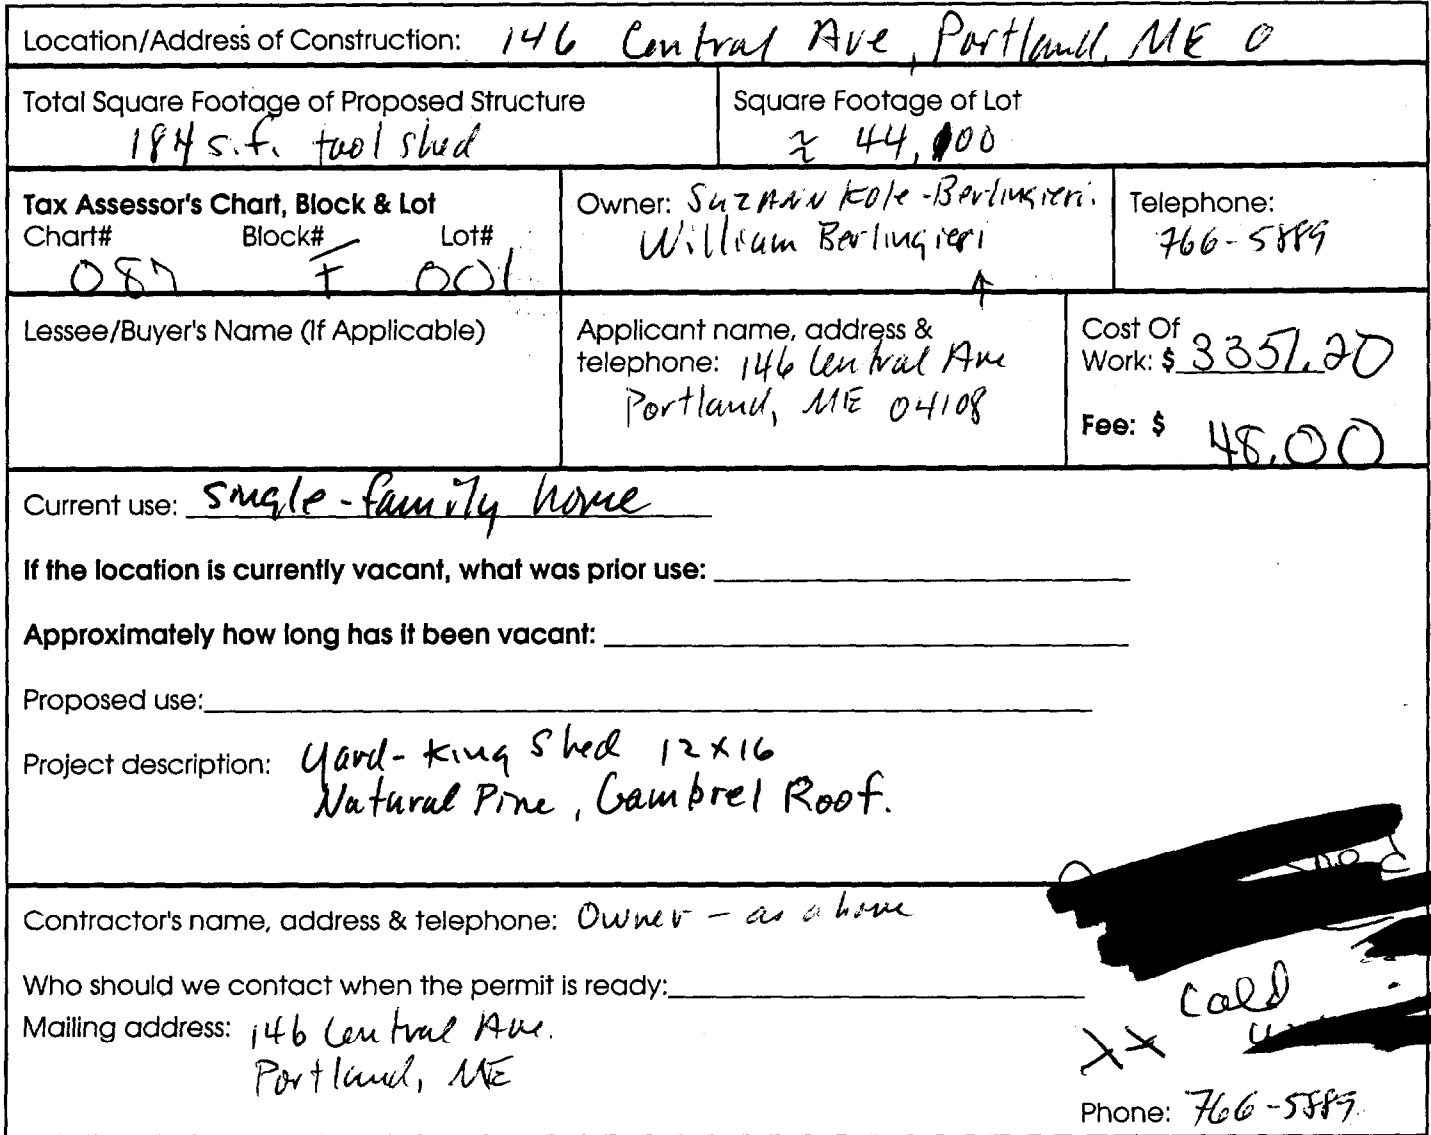 Location/Address of Construction: 146 Central Ave, Portland, ME 0
Total Square Footage of Proposed Structure
184 s.f. tool shed
Square Footage of Lot
≈ 44,100
Tax Assessor's Chart, Block & Lot
Chart# Block# Lot#
087 F 001
Owner: SUZANN Kole-Berlingieri.
William Berlingieri
Telephone:
766-5889
Lessee/Buyer's Name (If Applicable)
Applicant name, address &
telephone: 146 Central Ave
Portland, ME 04108
Cost Of
Work: $ 3351.20
Fee: $ 48.00
Current use: single-family home
If the location is currently vacant, what was prior use:
Approximately how long has it been vacant:
Proposed use:
Project description: Yard-King Shed 12x16
Natural Pine, Gambrel Roof.
Contractor's name, address & telephone: Owner - as above
Who should we contact when the permit is ready:
Mailing address: 146 Central Ave.
Portland, ME
XX
Phone: 766-5889